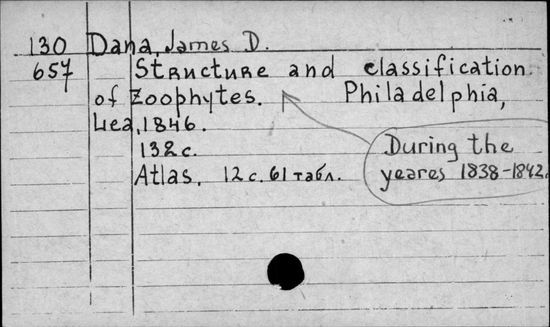 130 Dana, James D.
657 Structure and classification
of Zoophytes. Philadelphia,
Lea, 1846.
132 с.
Atlas, 12 с. 61 табл.
During the
yeares 1838-1842.